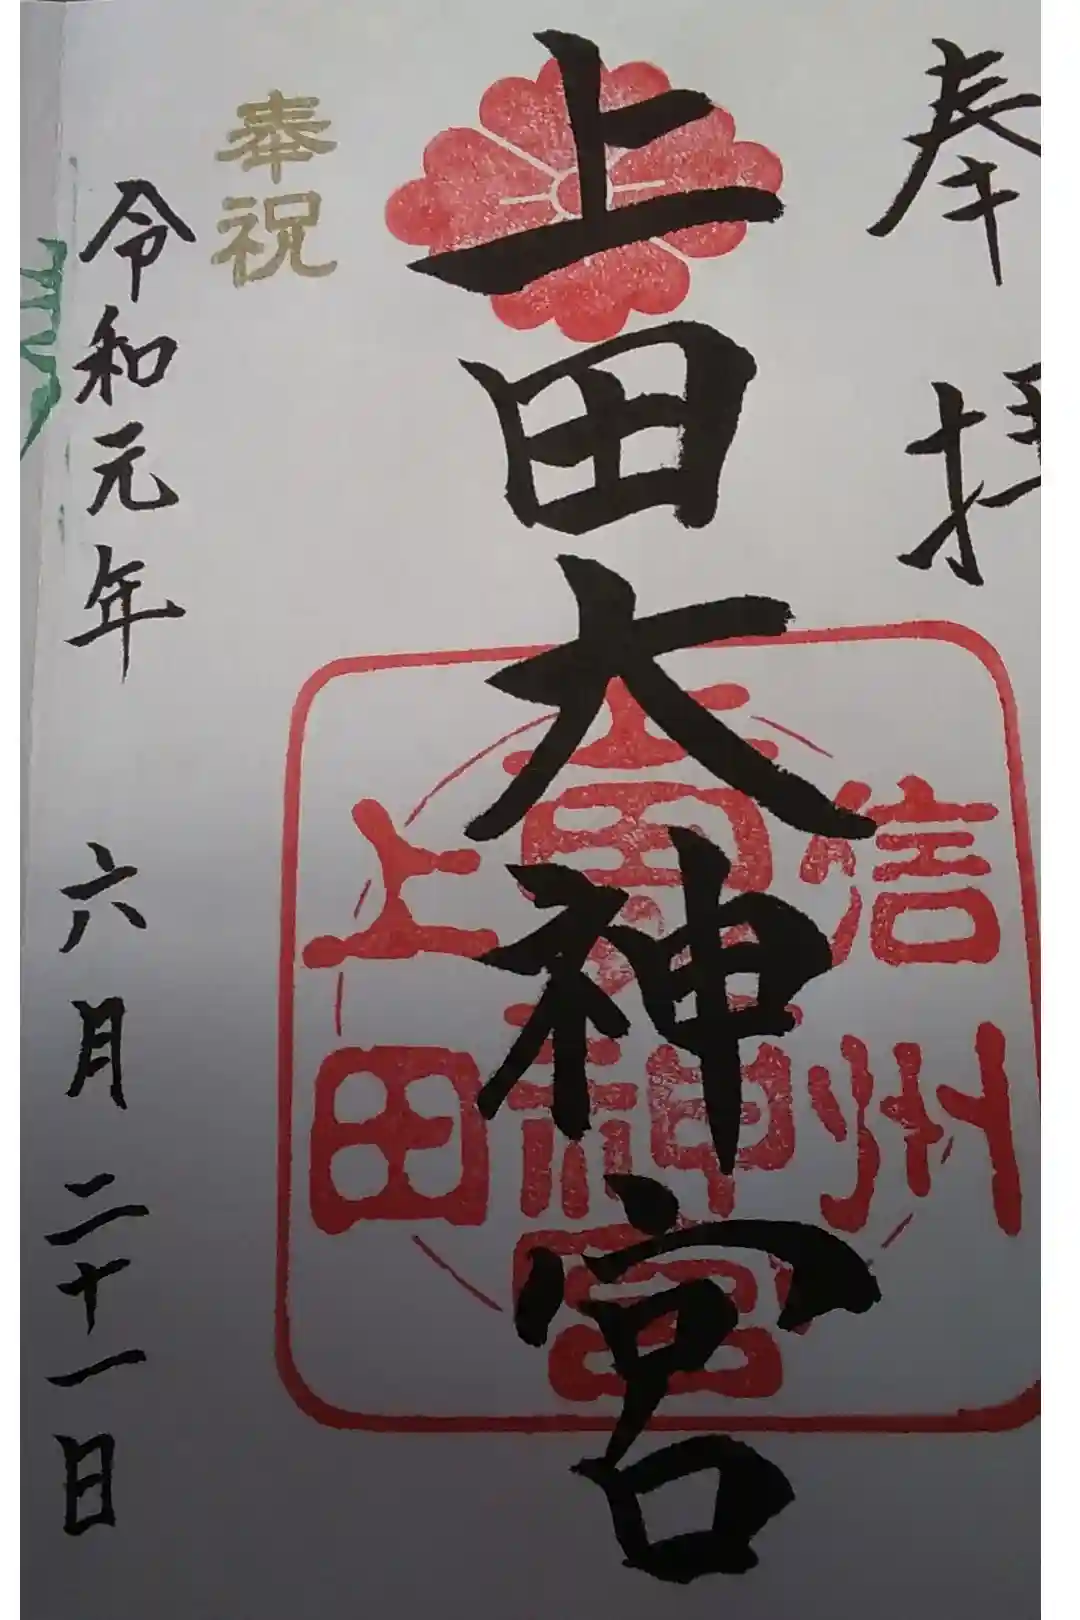 奉拝
上田大神宮
信州
上田
奉祝
令和元年 六月 二十一日